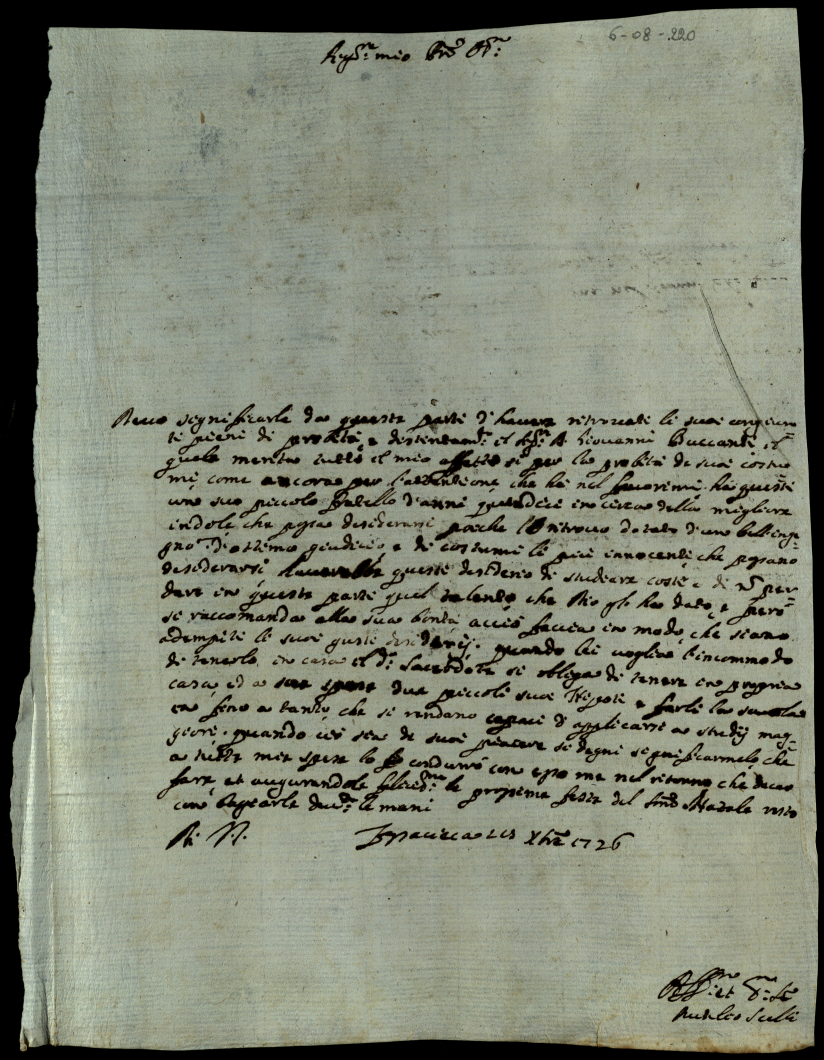 6-08-220
mio
Devo significarle da queste parti d'havere ritrovati li suoi congiun
ti pieni di probità, e distintam.te el Sig.r D. Giovanni Buccanti, il
quale merita tutto el mio affetto sì per la probità de suoi costu
mi come ancora per l'attentione che hà nel favorirmi. hà questi
uno suo piccolo fratello d'anni quindici in circa della migliore
indole, che possa desiderarsi poiche lo ritrovo dotato d'uno bell'inge
gno, d'ottimo giudicio, e di costumi li più innocenti che possano
desiderarsi haverebbe questi desiderio di studiare costì e di nõ per
dere in queste parti quel talento che Dio gl'hà dato, e però
si raccomanda alla sua bontà acciò faccia in modo, che siano
adempiti li suoi giusti desiderij. quando lei voglia l'incommodo
di tenerlo in casa el d.o Sacerdote si obliga di tenere in propria
casa ed a sue spese due piccoli suoi Nipoti e farli la scuola
in fino a tanto che si rendano capaci d'applicarsi a studij mag
giori. quando ciò sia di suo piacere si degni significarmelo, che
a tutte mie spese lo condurrò con esso me nel ritorno, che devo
fare et augurandole felicissime le prossime feste del Sto Natale resto
con bagiarle le mani
Xbre 1726